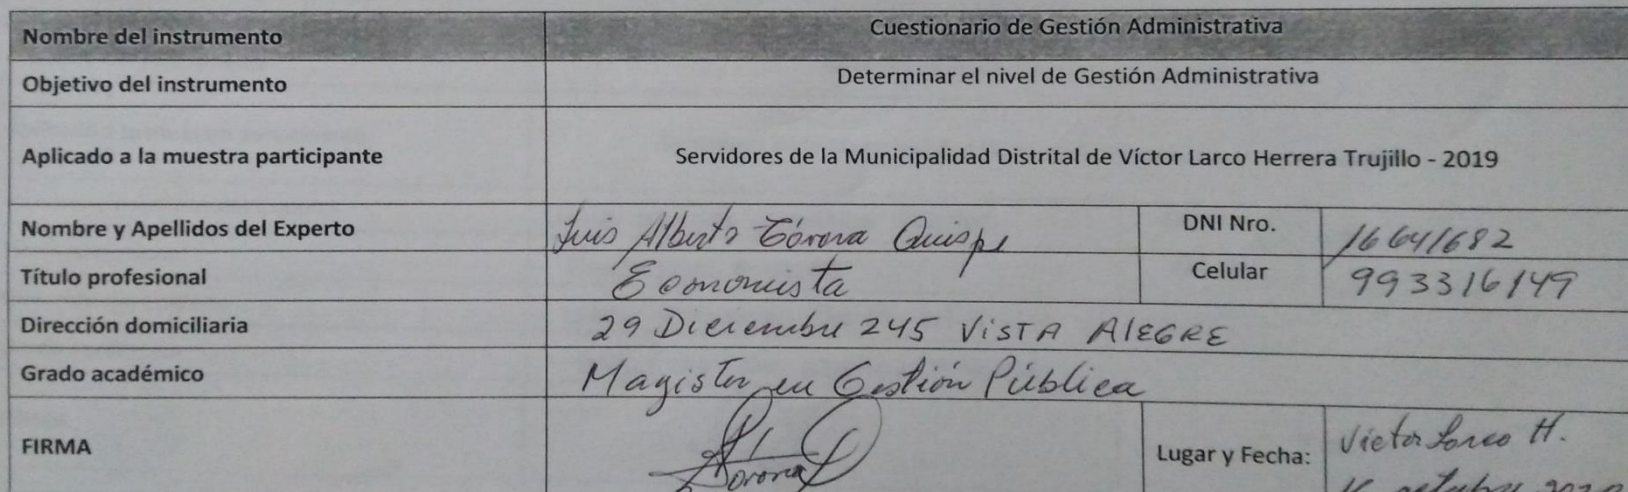 Nombre del instrumento Cuestionario de Gestión Administrativa
Objetivo del instrumento Determinar el nivel de Gestión Administrativa
Aplicado a la muestra participante Servidores de la Municipalidad Distrital de Víctor Larco Herrera Trujillo - 2019
Nombre y Apellidos del Experto Luis Alberto Quispe DNI Nro. 16641682
Título profesional Economista Celular 993316149
Dirección domiciliaria 29 Diciembre 245 VISTA ALEGRE
Grado académico Magister en Gestión Pública
FIRMA Lugar y Fecha: Victor Larco H.
octubre